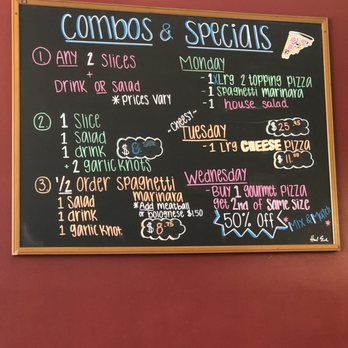 COMBOS & SPECIALS
① ANY 2 SLICES
+
DRINK OR SALAD
*PRICES VARY
② 1 SLICE
1 SALAD
1 DRINK
+ 2 GARLIC KNOTS
③ 1/2 ORDER SPAGHETTI
MARINARA
1 SALAD
*ADD MEATBALL
1 DRINK
OR BOLOGNESE $1.50
1 GARLIC KNOT
$8.75
MONDAY
- 1 XLRG 2 TOPPING PIZZA
- 1 SPAGHETTI MARINARA
- 1 HOUSE SALAD
$25
-CHEESY-
TUESDAY
- 1 LRG CHEESE PIZZA
$11
WEDNESDAY
- BUY 1 GOURMET PIZZA
GET 2ND OF SAME SIZE
50% OFF
*MIX & MATCH*